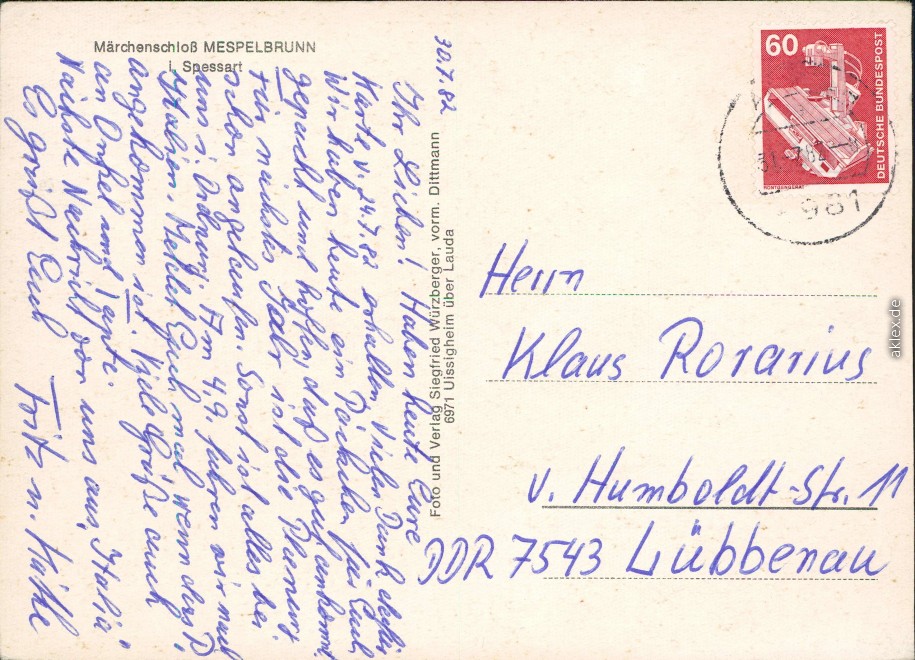 Märchenschloß MESPELBRUNN
i. Spessart
30.7.82
Ihr Lieben! Haben heute Eure
Karte v. 24.7.82 erhalten vielen Dank dafür
Wir haben heute ein Päckchen für Euch
gepackt und hoffen, daß es gut ankommt.
Für nächstes Jahr ist die Planung
schon angelaufen. Sonst ist alles bei
uns i. Ordnung. Am 4.9. fahren wir nach
Italien. Meldet Euch mal wenn das P.
angekommen ist. Viele Grüße auch
an Onkel und Tante.
Nächste Nachricht von uns aus Italia.
Es grüßt Euch Fritz u. Käthe
Foto und Verlag Siegfried Würzberger, vorm. Dittmann
6971 Uissigheim über Lauda
60
DEUTSCHE BUNDESPOST
RÖNTGENGERÄT
981
Herrn
Klaus Rorarius
v. Humboldt-Str. 11
DDR 7543 Lübbenau
aklex.de